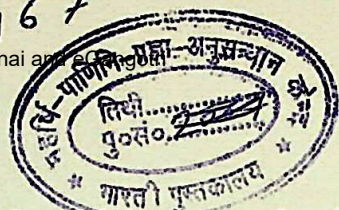 67
nai and eGangotri
महर्षि-पाणिनि-प्रज्ञा-अनुसन्धान
तिथी..................
पु०सं०
* भारती पुस्तकालय *